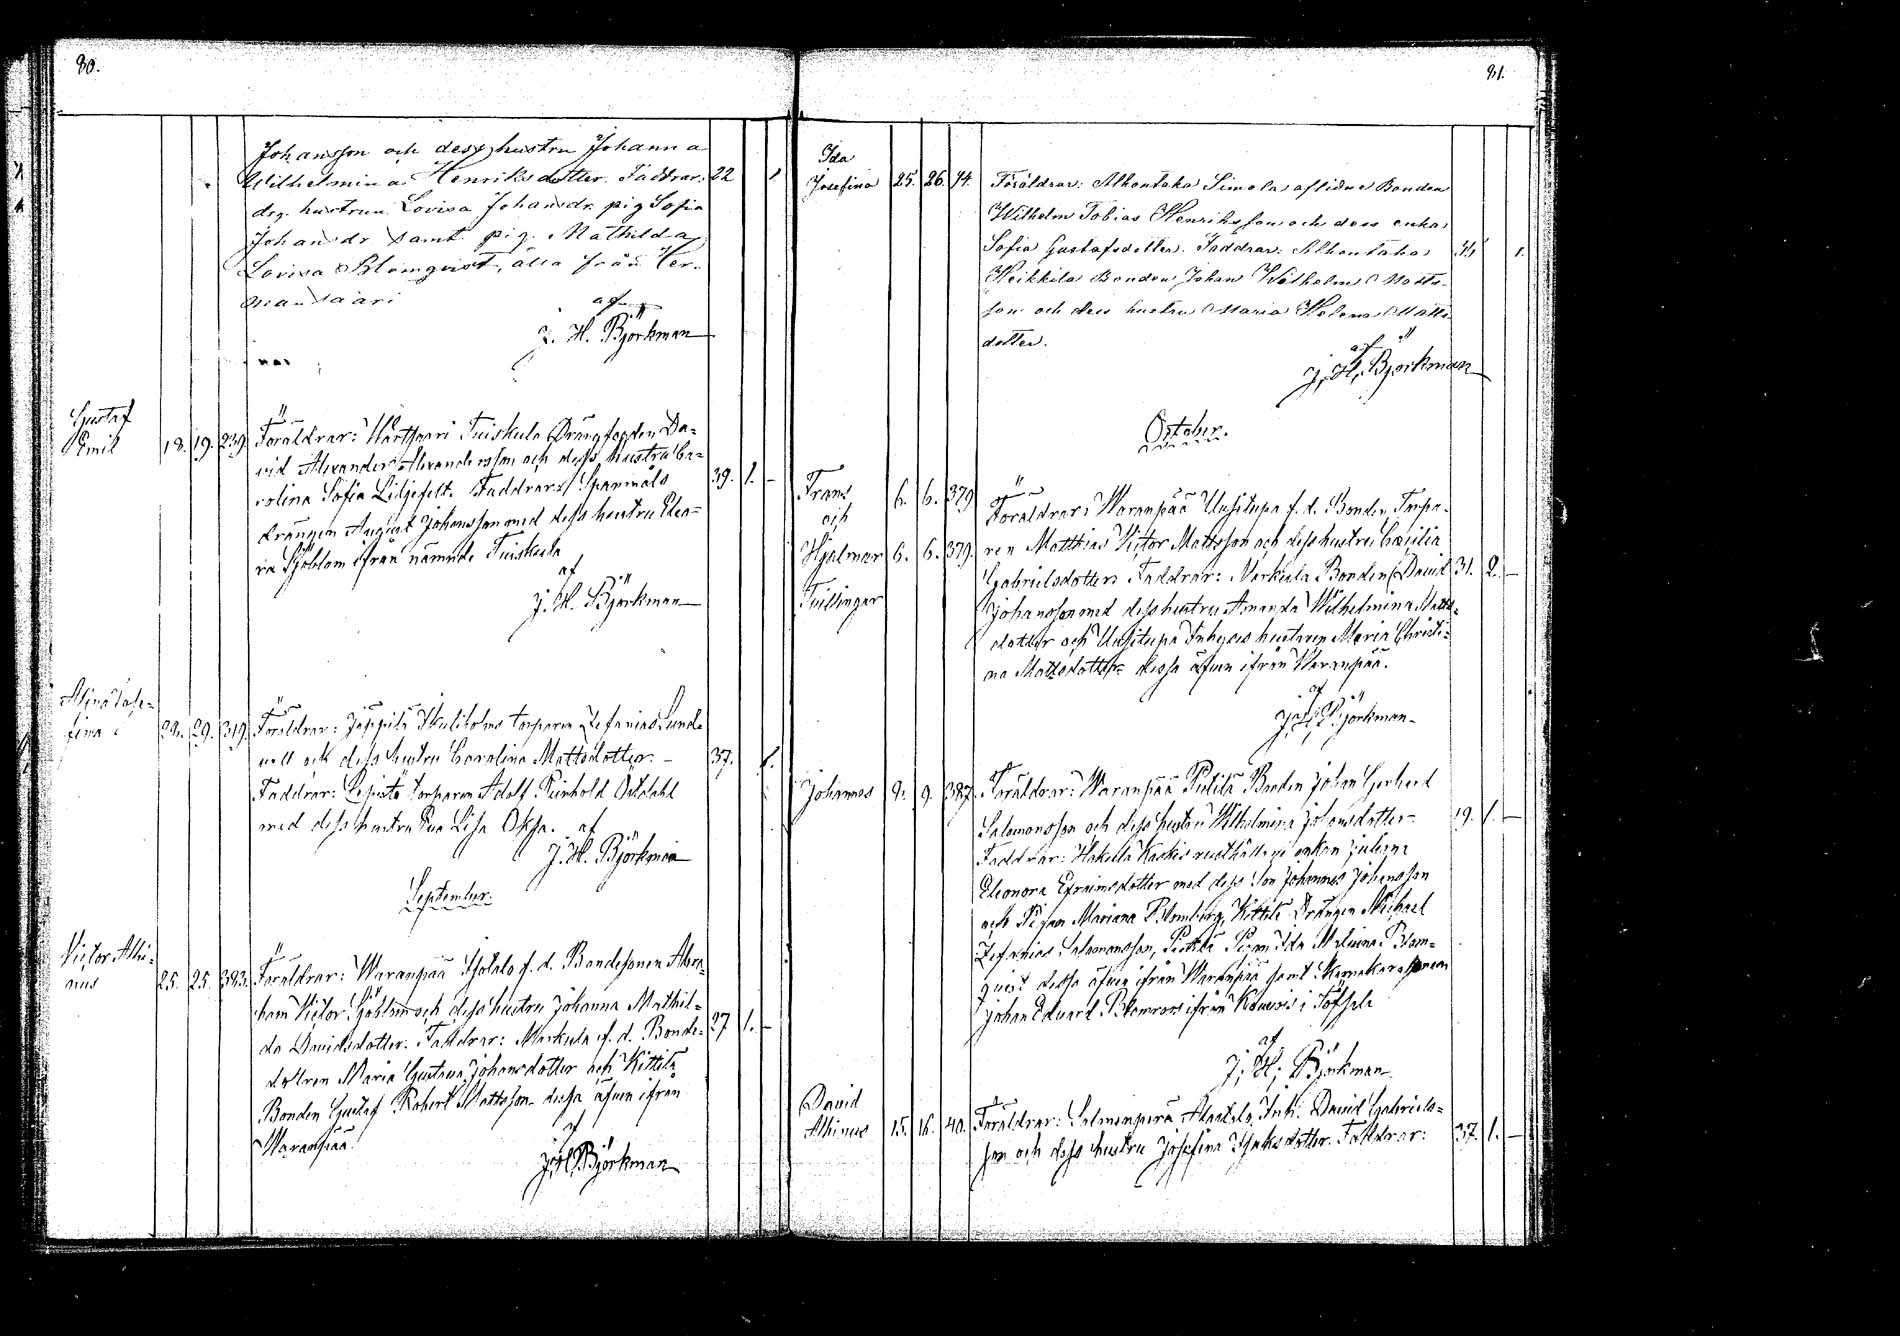 80.
Johansson och dess hustru Johanna
Wilhelmina Henriksdotter. Faddrar: 22 1
drg. hustrun Lovisa Johansdr. pig Sofia
Johansdr samt pig. Mathilda
Lovisa Blomqvist, alla från Her-
mansaari
af
J. H. Björkman
Gustaf
Emil 18. 19. 239. Föräldrar: Wartsaari Tuiskula Drängen Da-
vid Alexander Alexandersson och dess hustru Ca-
rolina Sofia Liljefelt. Faddrar: Spanmåls 39. 1. -
drängen August Johansson med dess hustru Eleo-
ra Sjöblom ifrån nämnde Tuiskula
af
J. H. Björkman
Alina Jose-
fina 28. 29. 319. Föräldrar: Jäppilä torparen Zefanias Lund
vall och dess hustru Carolina Mattsdotter. - 37. 1.
Faddrar: Lepistö torparen Adolf Reinhold Östdahl
med dess hustru Eva Lisa Oksa. af
J. H. Björkman
September.
Victor Albi-
nus 25. 25. 383. Föräldrar: Waranpää Isotalo f. d. Bondesonen Abra-
ham Victor Sjöblom och dess hustru Johanna Mathil-
da Davidsdotter. Faddrar: Markula f. d. Bonde- 27 1. -
dottren Maria Gustava Johansdotter och Kittilä
Bonden Gustaf Robert Mattsson dessa äfven ifrån
Waranpää.
af
J. H. Björkman
81.
Ida
Josefina 25. 26. 74. Föräldrar: Alhontaka Simola aflidne Bonden
Wilhelm Tobias Henriksson och dess enka
Sofia Gustafsdotter. Faddrar: Alhontaka 1.
Heikkilä Bonden Johan Wilhelm Matts-
son och dess hustru Maria Helena Matts-
dotter.
af
J. H. Björkman
October.
Frans 6. 6. 379 Föräldrar: Waranpää Uusitupa f. d. Bonden Torpa-
och ren Matthias Victor Mattsson och dess hustru Cæcilia
Hjalmar 6. 6. 379. Gabrielsdotter. Faddrar: Markula Bonden David 31. 2. -
Tvillingar Johansson med dess hustru Amanda Wilhelmina Matts-
dotter och Uusitupa Inhyses hustrun Maria Christi-
na Mattsdotter dessa äfven ifrån Waranpää.
af
J. H. Björkman
Johannes 8. 9. 387. Föräldrar: Waranpää Pietilä Bonden Johan Gerhard
Salomonsson och dess hustru Wilhelmina Johansdotter - 19. 1. -
Faddrar: Hakula Kaskis rusthållare enkan Juliana
Eleonora Efraimsdotter med dess son Johannes Johansson
och Pigan Mariana Blomberg, Kittilä Drängen Michael
Zefanias Salomonsson, Pietilä Pigan Ida Malvina Blom-
qvist dessa äfven ifrån Waranpää samt Kannakare sonen
Johan Eduard Blomroos ifrån Kouvis i Töfsala
af
J. H. Björkman
David
Albinus 15. 16. 40. Föräldrar: Salmenperä Alastalo Inh. David Gabriels-
son och dess hustru Josefina Isaksdotter. Faddrar: 37. 1. -